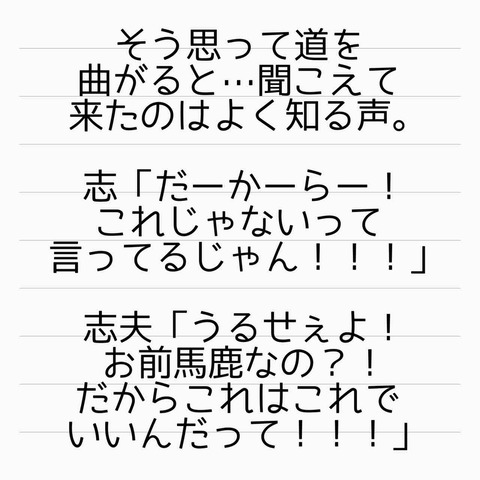 そう思って道を
曲がると…聞こえて
来たのはよく知る声。
志「だーかーらー！
これじゃないって
言ってるじゃん！！！」
志夫「うるせぇよ！
お前馬鹿なの？！
だからこれはこれで
いいんだって！！！」